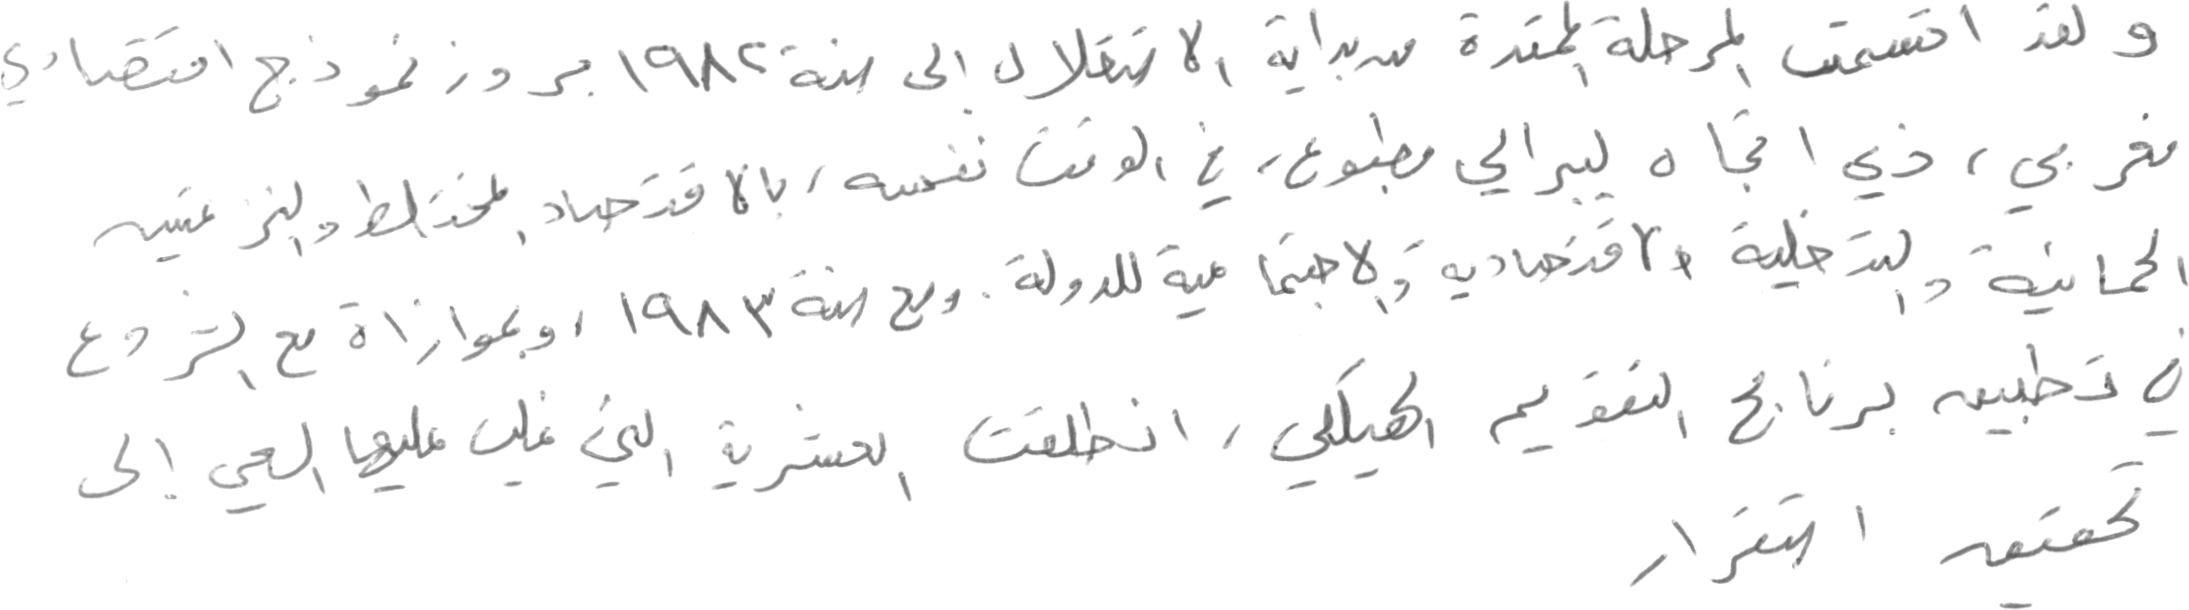 ولقد اتسمت المرحلة الممتدة من بداية الاستقلال إلى سنة ١٩٨٢ ببروز نموذج اقتصادي
مغربي، ذي اتجاه ليبرالي مطبوع، في الوقت نفسه، بالاقتصاد المختلط والنزعتين
الحمائية والتدخلية الاقتصادية والاجتماعية للدولة. ومع سنة ١٩٨٣، وبموازاة مع الشروع
في تطبيق برنامج التقويم الهيكلي، انطلقت العشرية التي غلب عليها السعي إلى
تحقيق استقرار